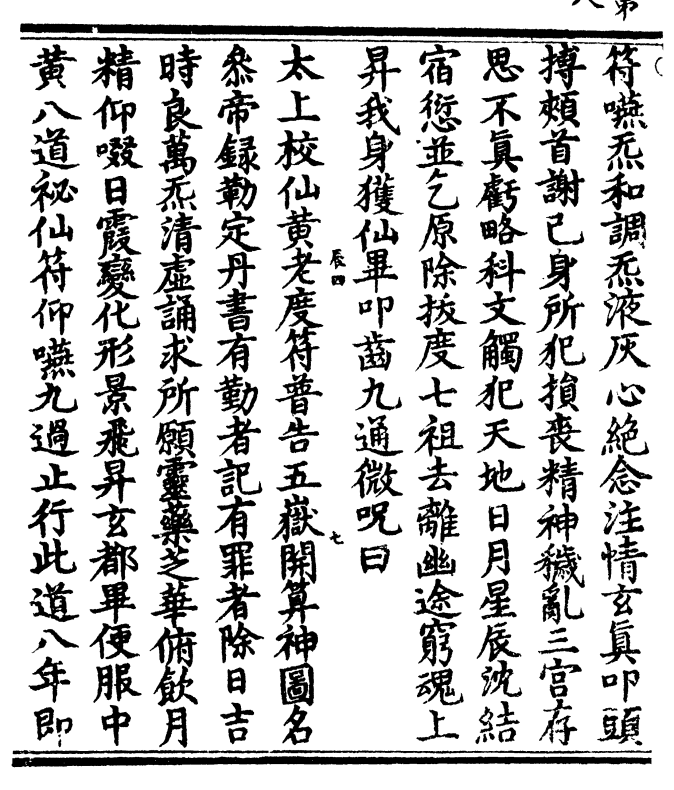 符嚥炁和調炁液灰心絶念注情玄真叩頭
搏頰首謝己身所犯損喪精神穢亂三宮存
思不真虧略科文觸犯天地日月星辰沈結
宿愆並乞原除拔度七祖去離幽途窮魂上
昇我身獲仙畢叩齒九通微呪曰
太上校仙黄老度符普告五嶽開算神圖名
叅帝録勒定丹書有勤者記有罪者除日吉
時良萬炁清虛誦求所願靈藥芝華俯飲月
精仰啜日霞變化形景飛昇玄都畢便服中
黄八道祕仙符仰嚥九過止行此道八年即
辰四
七